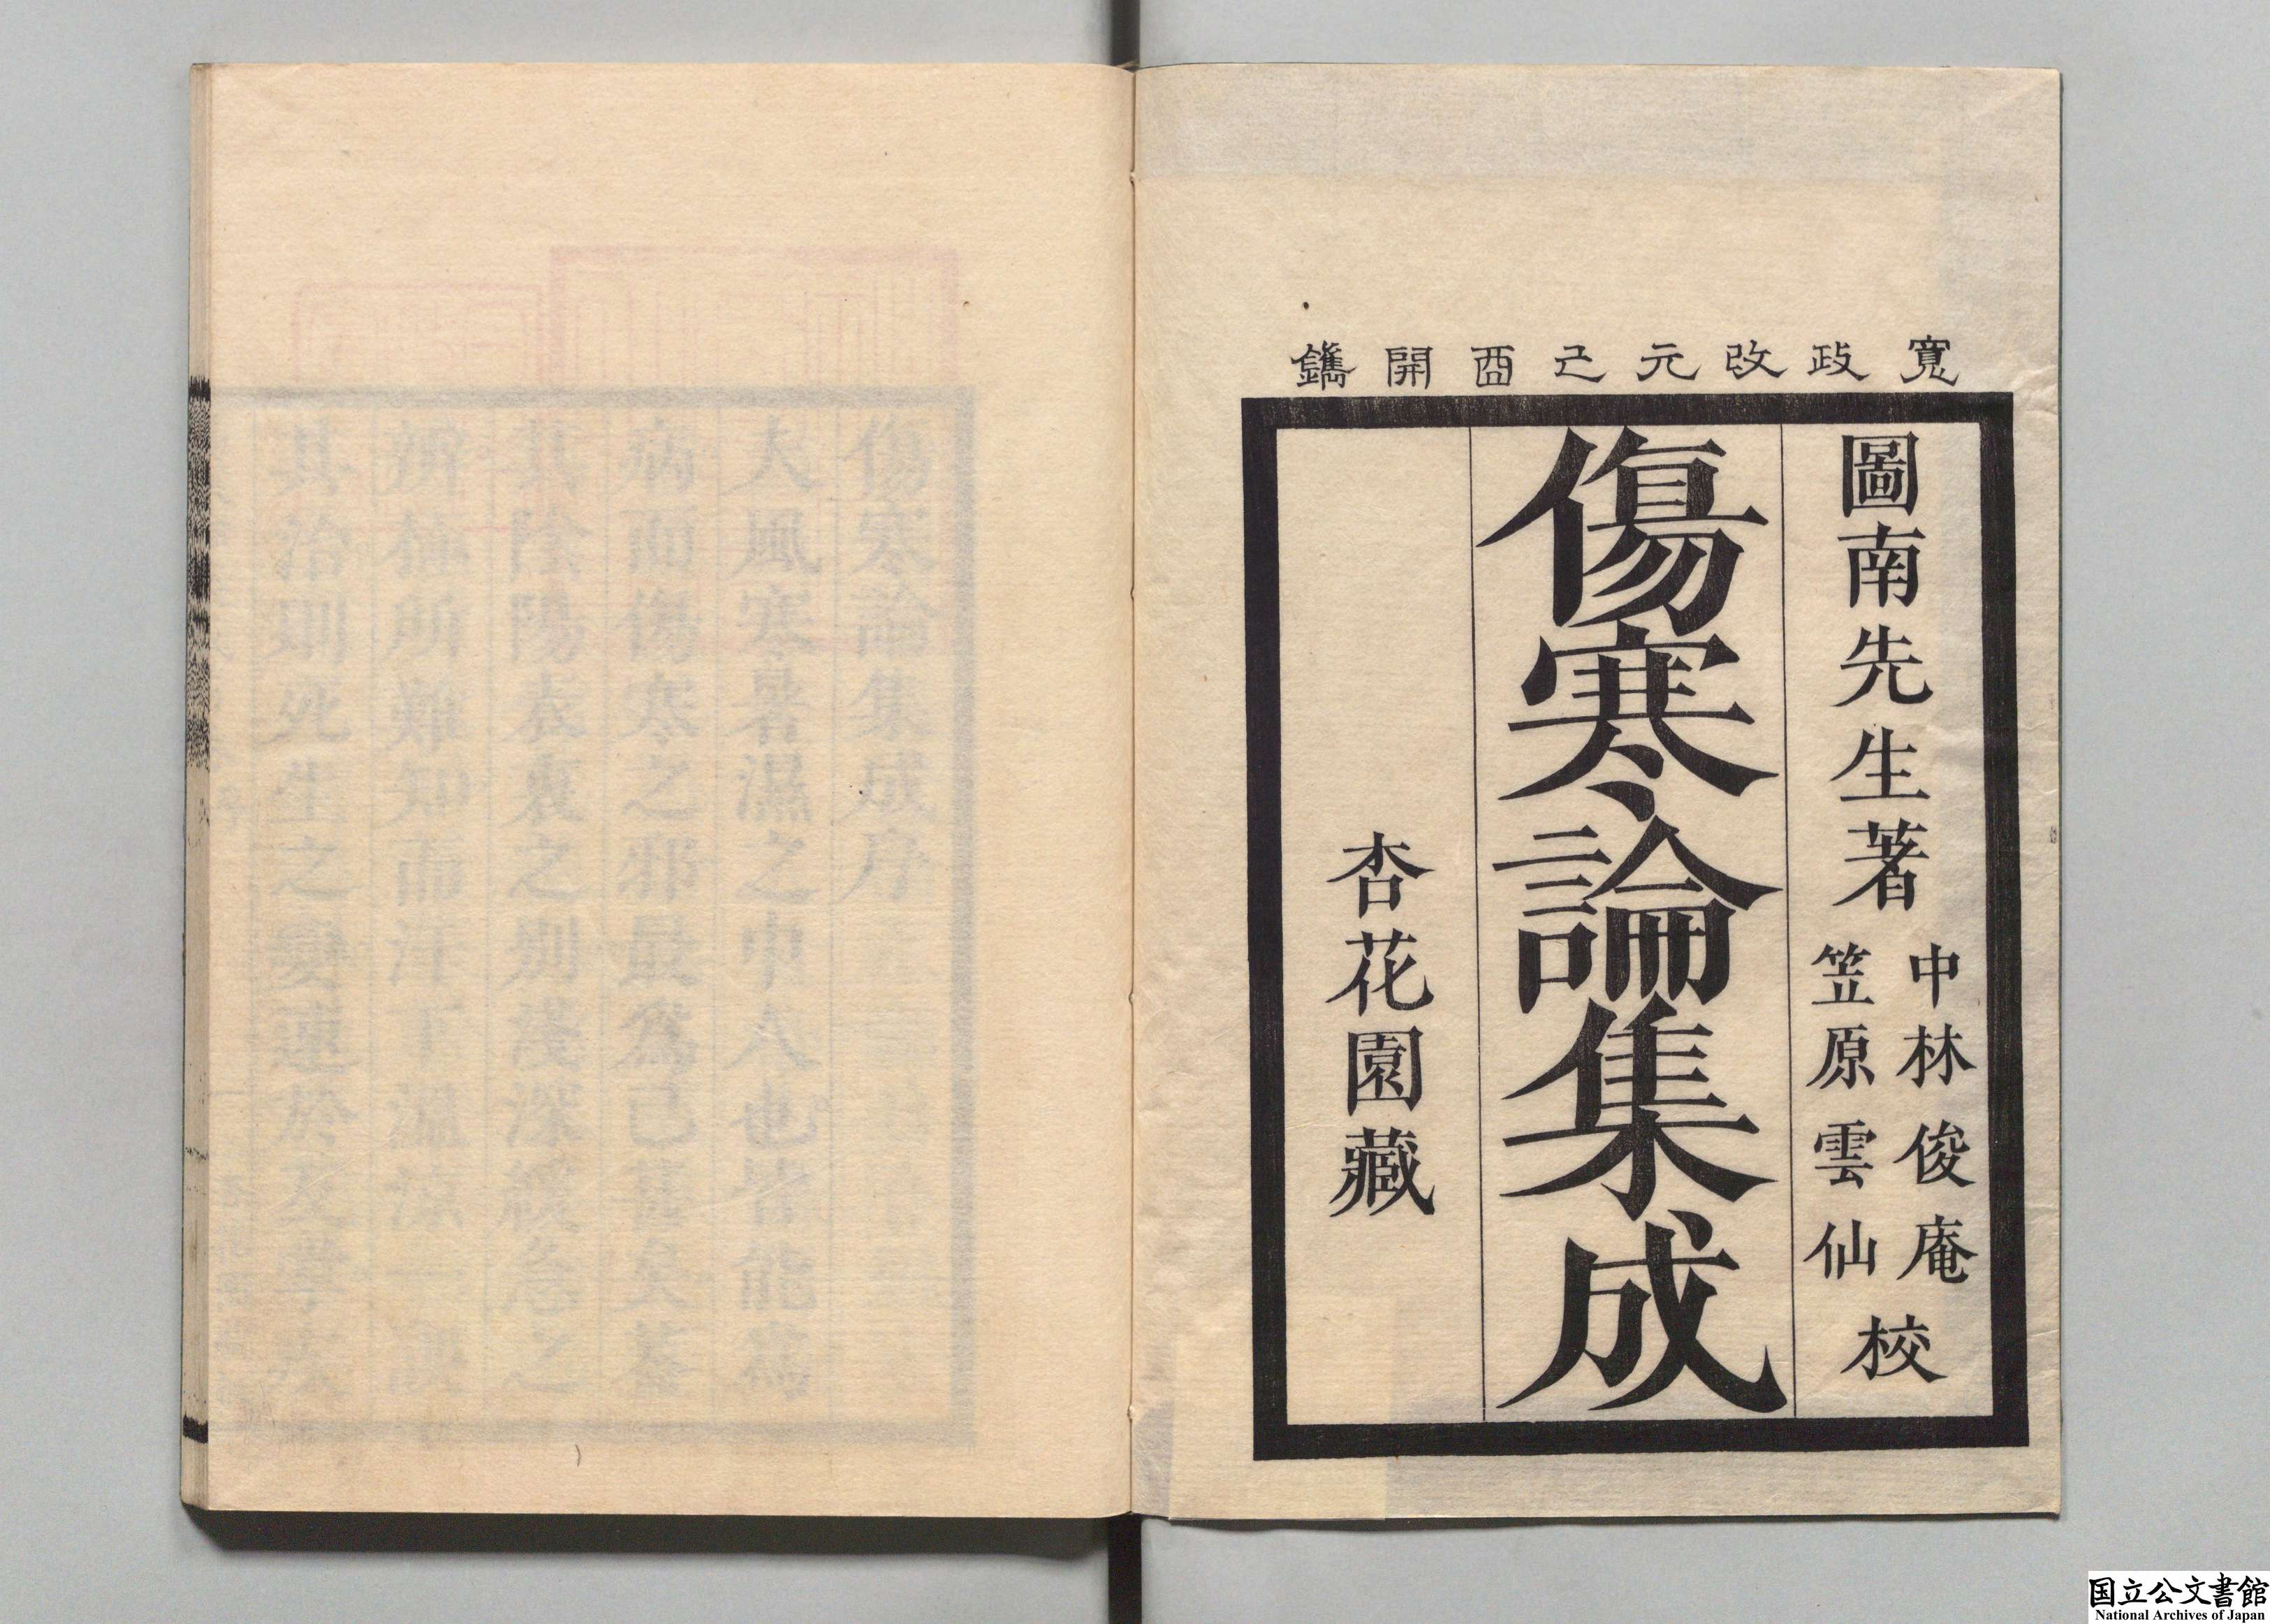 寬政改元己酉開鐫
圖南先生著
中林俊庵
笠原雲仙
校
傷寒論集成
杏花園藏
傷寒論集成序
夫風寒暑濕之中人也皆能爲
病而傷寒之邪最爲已甚矣蓋
其陰陽表裏之別淺深緩急之
辨極所難知而汗下溫涼一誤
其治則死生之變連於反掌矣
国立公文書館
National Archives of Japan